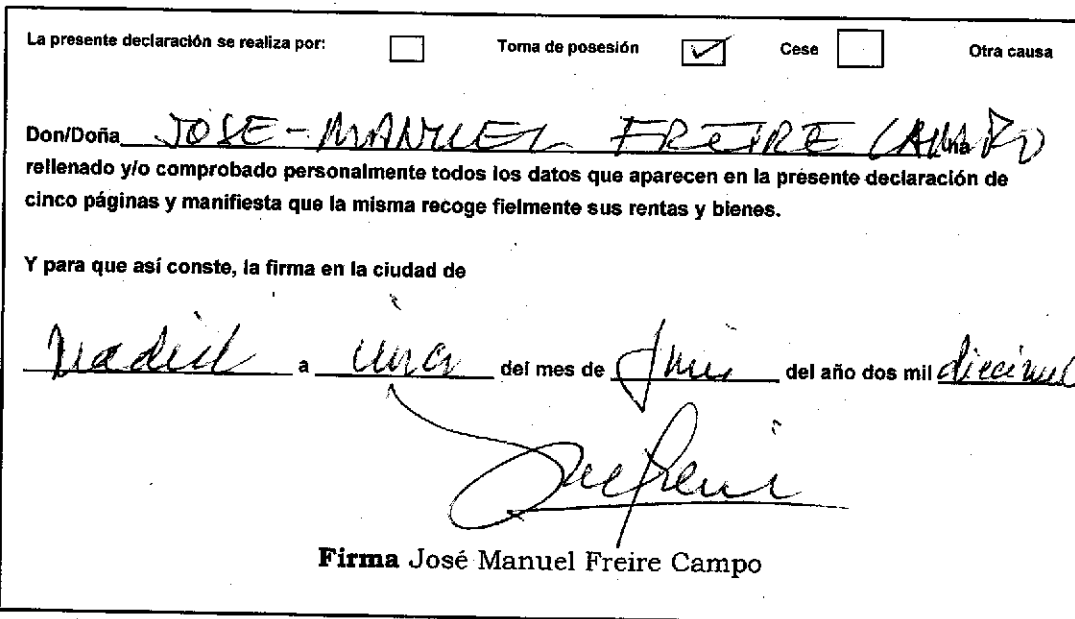 La presente declaración se realiza por: Toma de posesión Cese Otra causa
Don/Doña JOSE-MANUEL FREIRE CAMPO ha
rellenado y/o comprobado personalmente todos los datos que aparecen en la presente declaración de
cinco páginas y manifiesta que la misma recoge fielmente sus rentas y bienes.
Y para que así conste, la firma en la ciudad de
Madrid a del mes de del año dos mil diecinue
Firma José Manuel Freire Campo